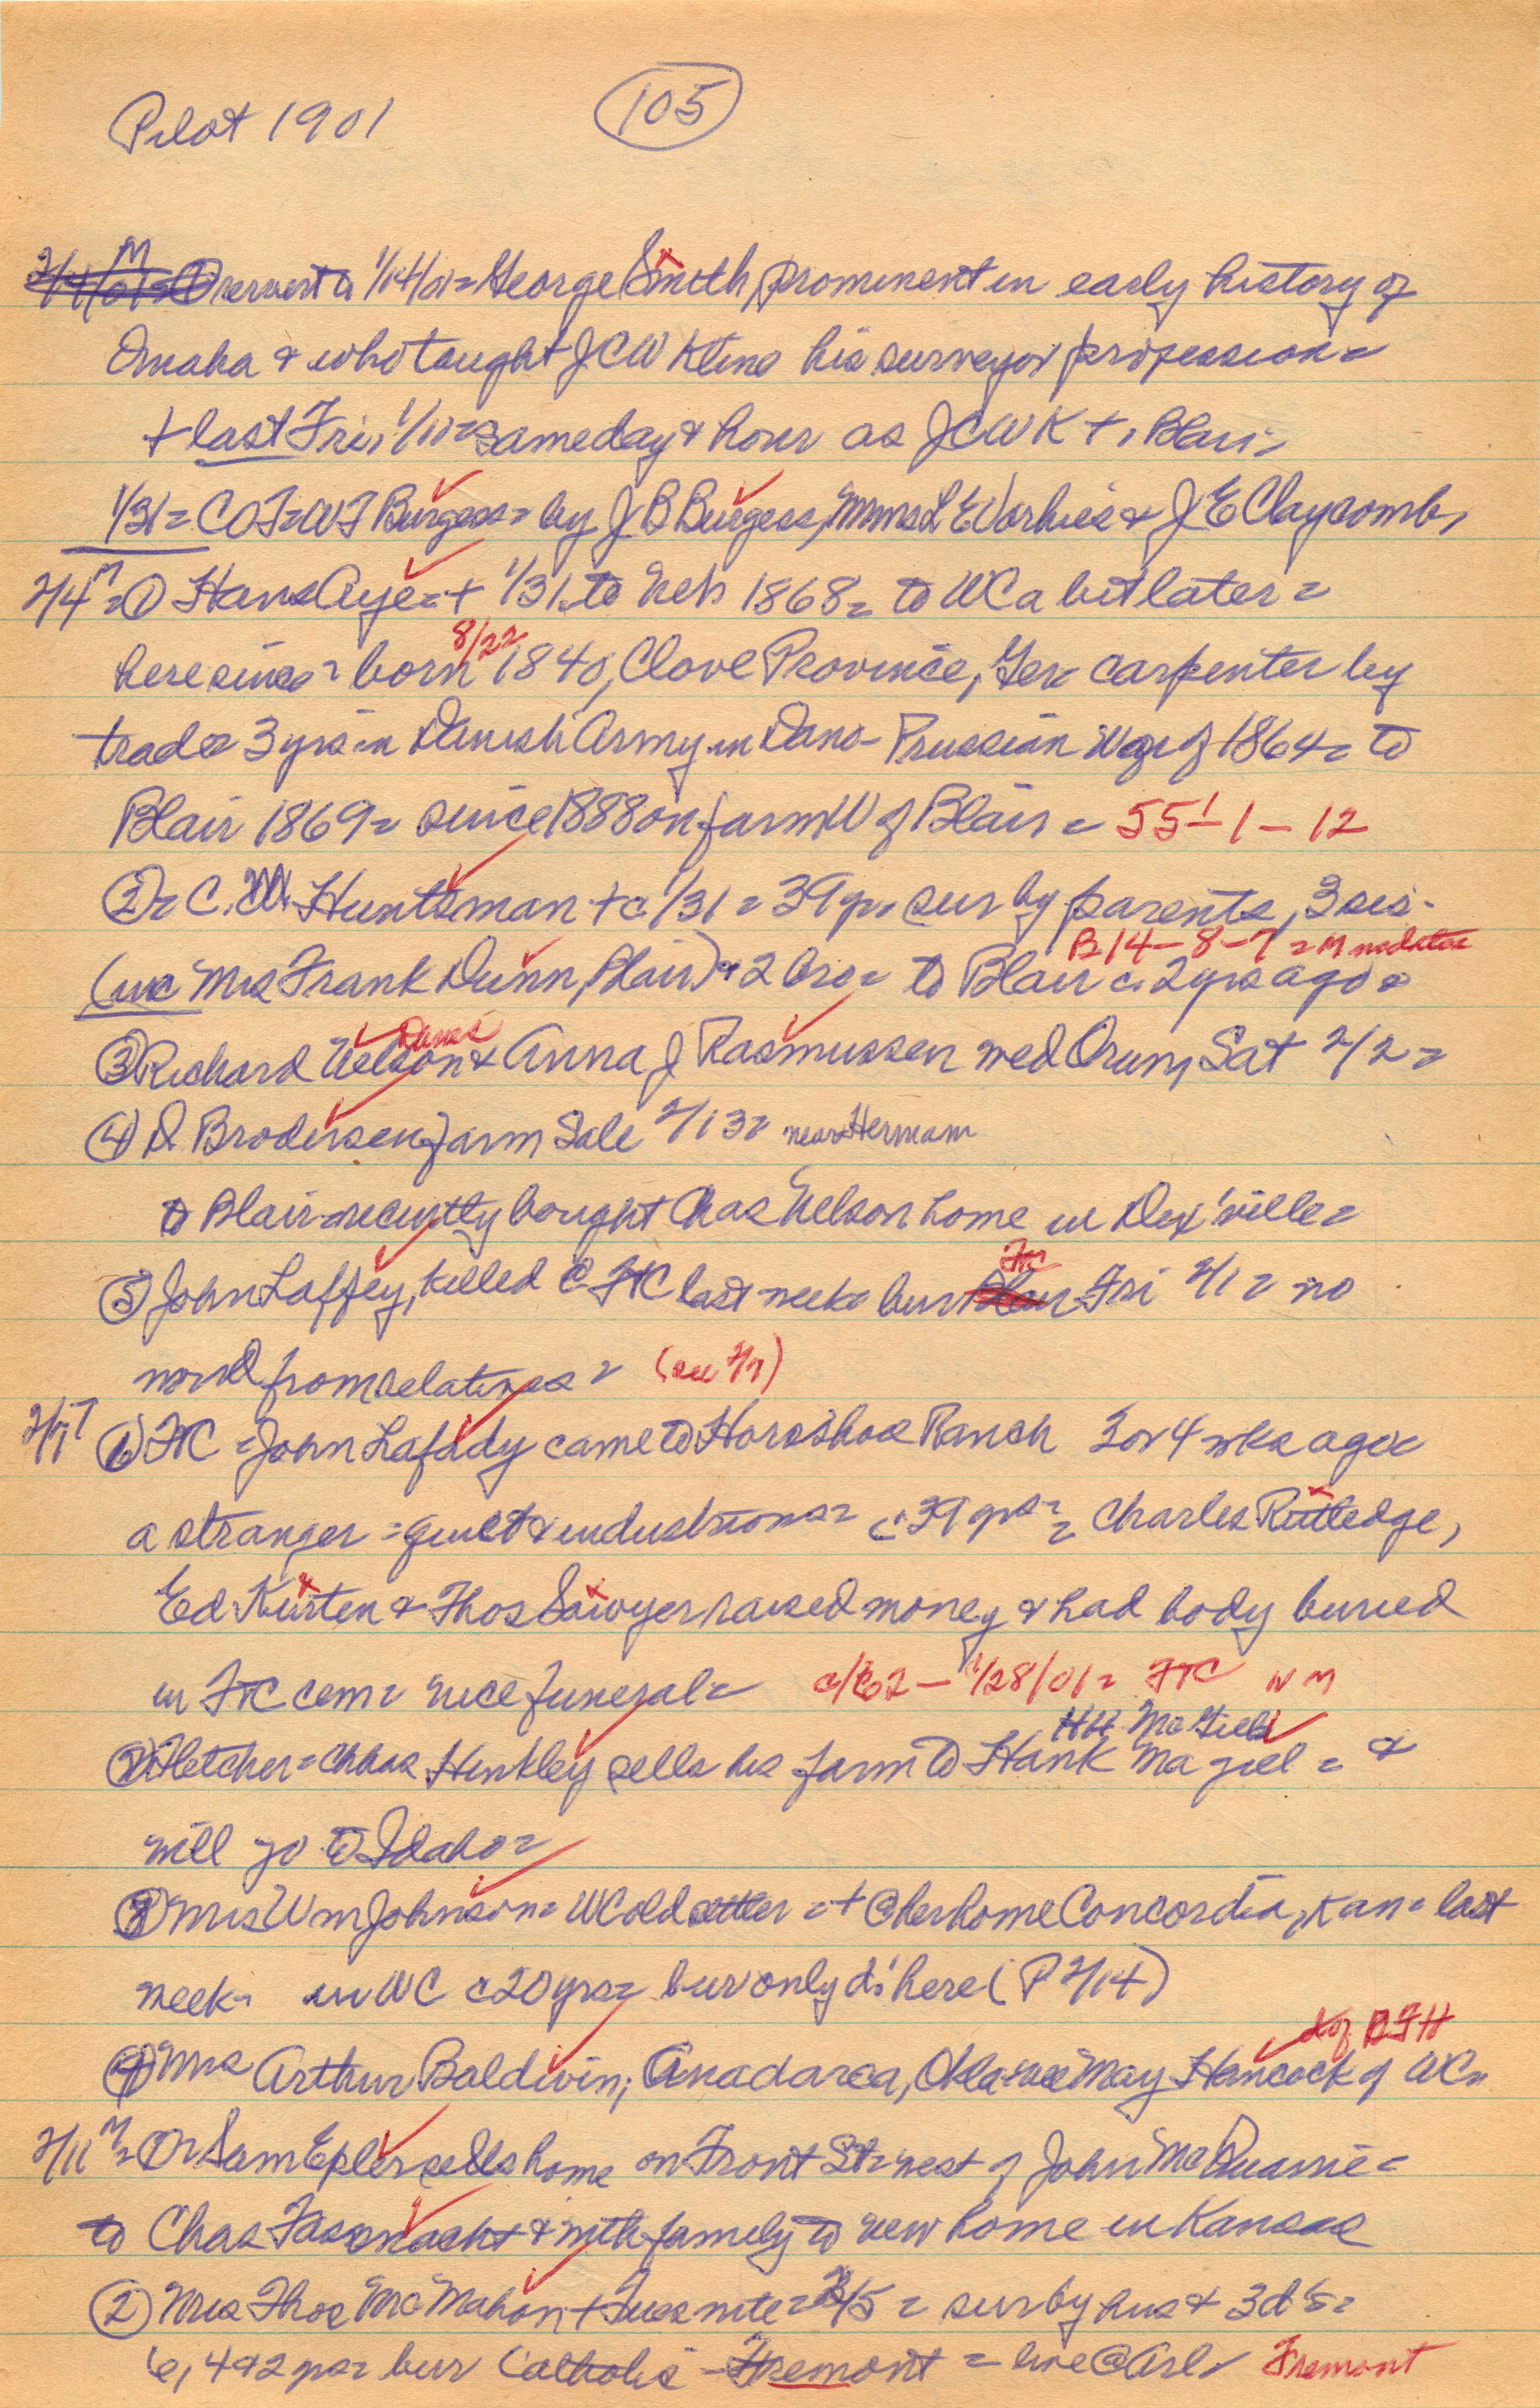 Pilot 1901
105
1/14/01 = George Smith, prominent in early history of
Omaha & who taught JCW Kline his surveyor profession =
+ last Fri, 1/11 = same day & hour as JCWK +, Blair =
1/31 = COT = WF Burgess = by J B Burgess, Mmes L E Vorhies & J E Claycomb,
2/4 M = ① Hans Aye = + 1/31 = to Neb 1868 = to WC a bit later =
here since = born 8/22 1840, Clove Province, Ger = carpenter by
trade = 3 yrs in Danish Army in Dano-Prussian War of 1864 = to
Blair 1869 = since 1888 on farm W of Blair = 55-1-12
② = C. W. Huntsman + c. 1/31 = 39 yr = sur by parents, 3 sis.
B 14-8-7 = M no date
(inc Mrs Frank Dunn, Blair) & 2 bro = to Blair c. 2 yrs ago =
③ Richard Nelson & Anna J Rasmussen wed Orum, Sat 2/2 =
④ D Brodersen farm Sale 2/13 = near Herman
to Blair = recently bought Chas Nelson home in Dex'ville =
⑤ John Laffey, killed @ FtC last week = bur FtC Fri 2/1 = no
word from relatives = (see 2/7)
2/7 T ① FtC = John Lafady came to Horseshoe Ranch 3 or 4 wks ago =
a stranger = quiet & industrious = c. 39 yrs = Charles Rutledge,
Ed Kursten & Thos Sawyer raised money & had body buried
in FtC cem = nice funeral = 1/28/01 = FtC N M
HH McGiel
② Fletcher = Chas Hinkley sells his farm to Hank Magiel = &
will go to Idaho =
③ Mrs Wm Johnson = WC old settler = + @ her home Concordia, Kan = last
week = in WC c 20 yrs = bur only d. here (P 2/14)
d of DFH
④ Mrs Arthur Baldwin, Anadarca, Okla = nee May Hancock of WC =
2/11 M = ① = Sam Epler sells home on Front St = west of John McQuarrie =
to Chas Fassnacht & with family to new home in Kansas
② Mrs Thos McMahon + Tues nite = 2/5 = sur by hus & 3 d's =
6, 4 & 2 yrs = bur Catholic - Fremont = live @ Arl = Fremont